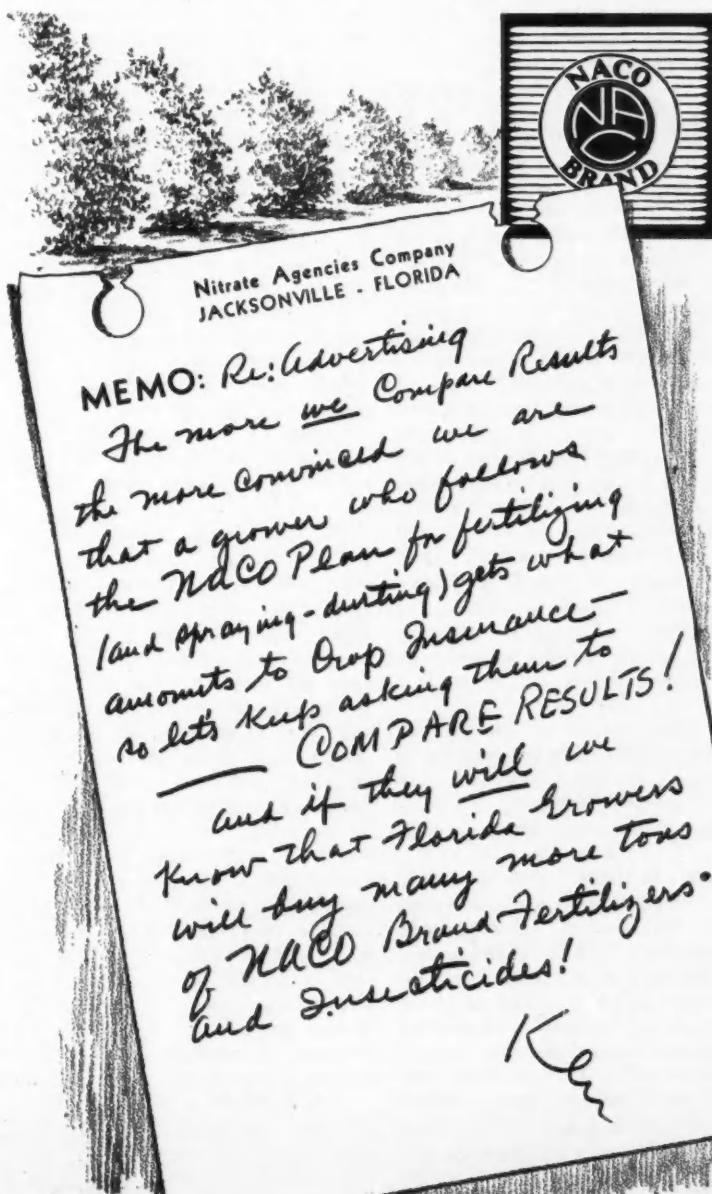 NACO
NAC
BRAND
Nitrate Agencies Company
JACKSONVILLE - FLORIDA
MEMO: Re: Advertising
The more we Compare Results
the more convinced we are
that a grower who follows
the NACO Plan for fertilizing
(and spraying-dusting) gets what
amounts to Crop Insurance—
so let's keep asking them to
— COMPARE RESULTS!
and if they will we
know that Florida Growers
will buy many more tons
of NACO Brand Fertilizers
and Insecticides!
Ken